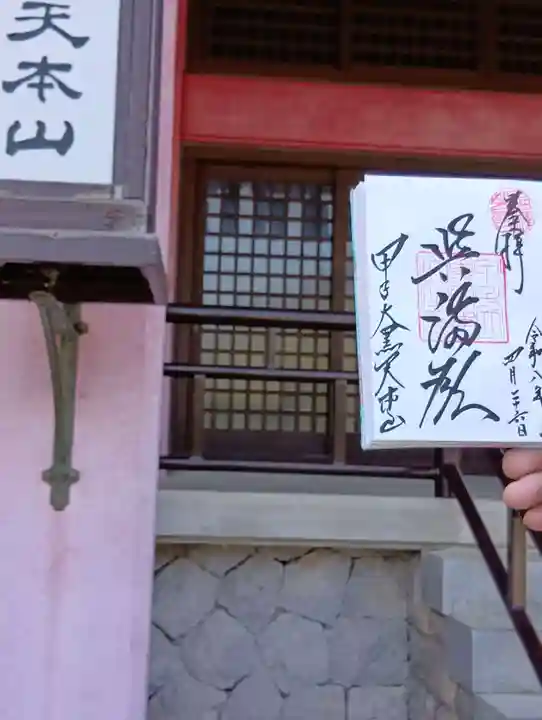 天本山
奉拝
呉満殿
甲子大黒天本山
令和八年
四月二十六日